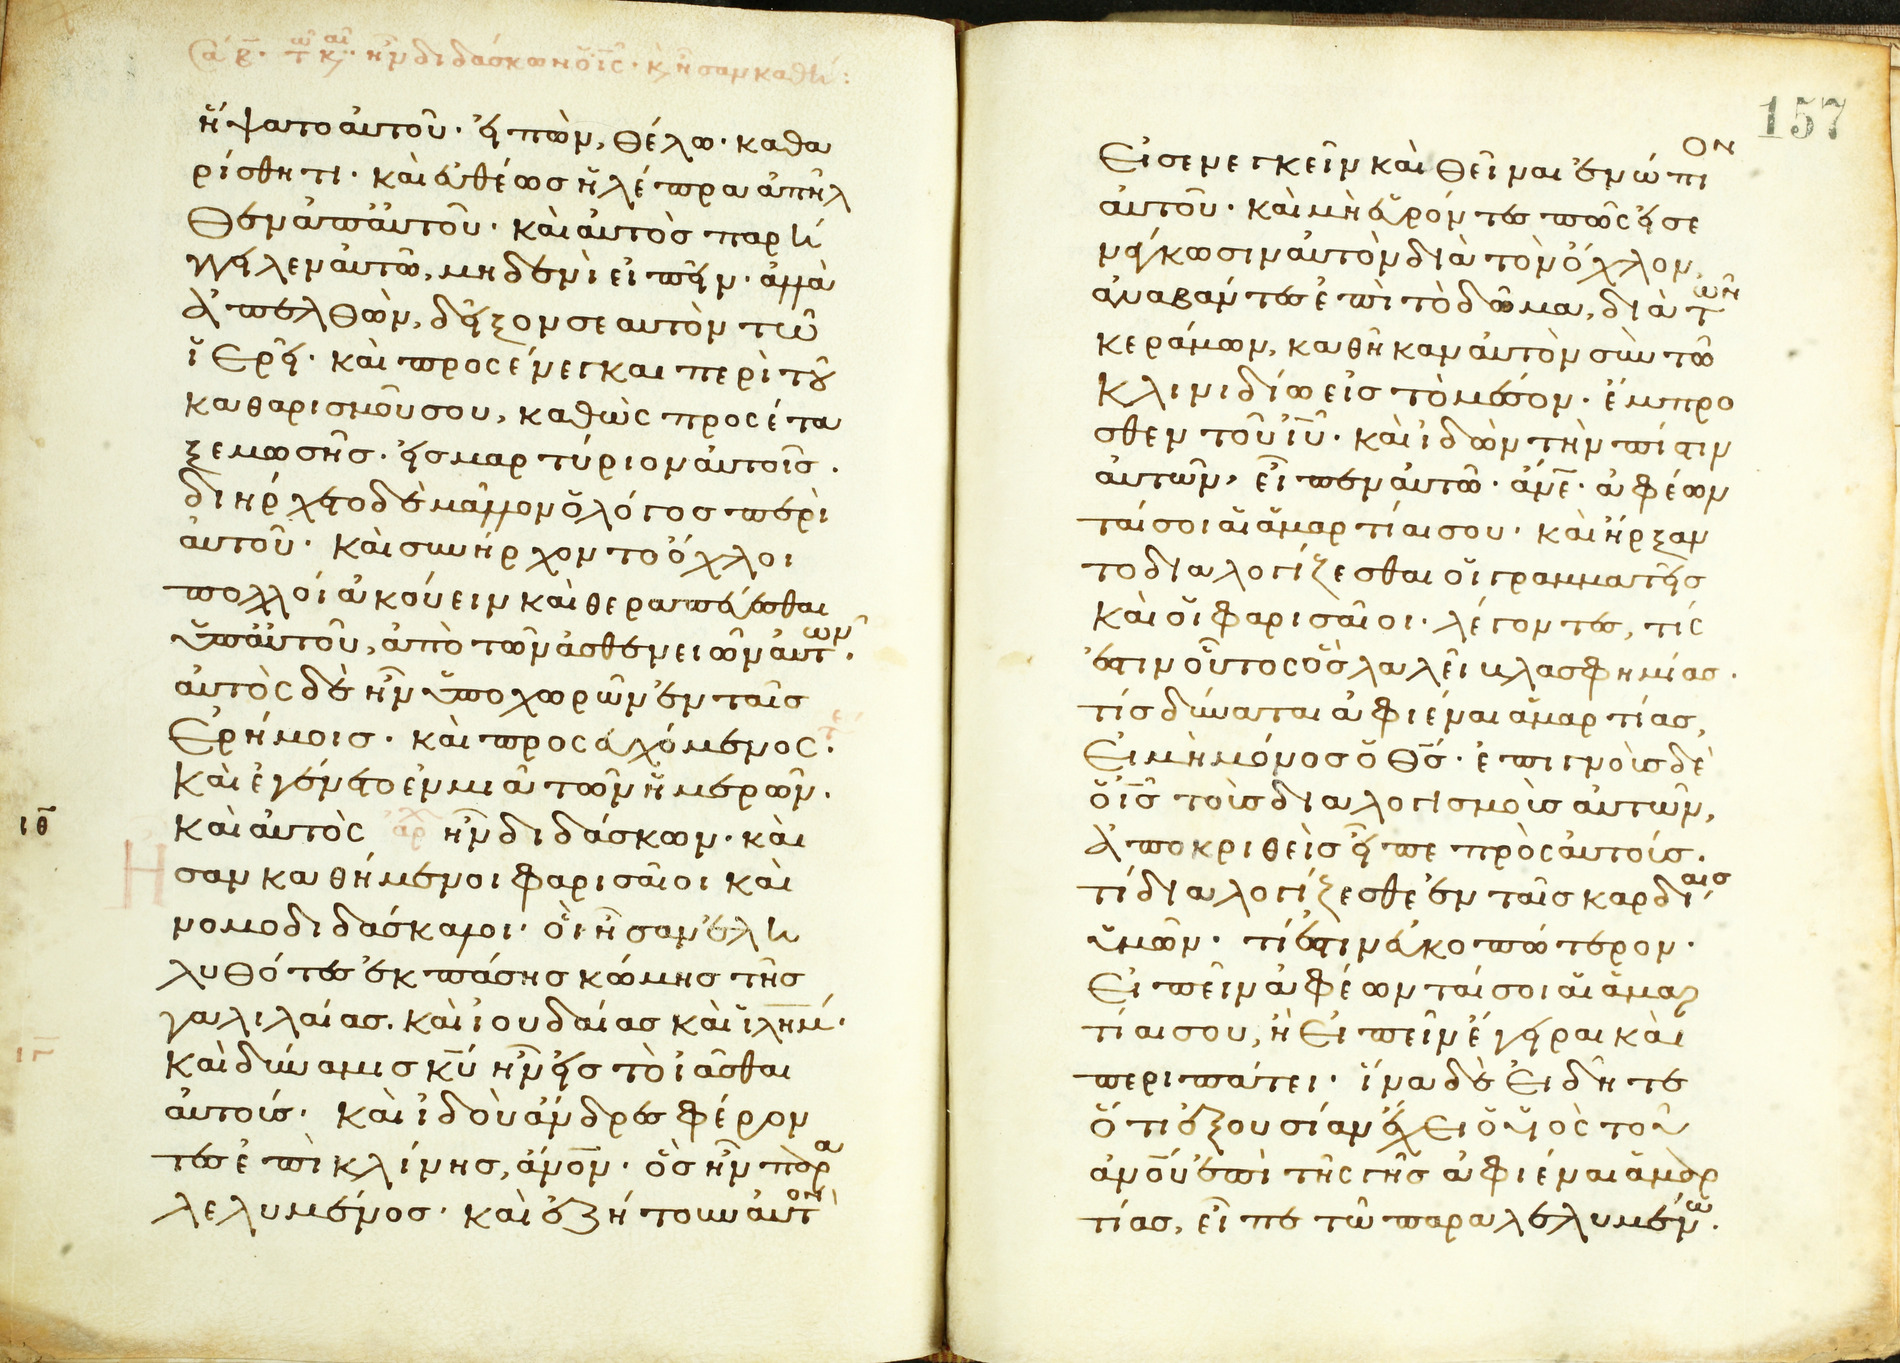 Σα β. τῶ κ αι. ἦν διδάσκων ὁ ἰς. κ ἦσαν καθή:
ἥψατο αὐτοῦ. εἰπὼν, θέλω. καθα
ρίσθητι. καὶ εὐθέωσ ἡ λέπρα ἀπῆλ
θεν ἀπ' αὐτοῦ. καὶ αὐτὸσ παρή
γγειλεν αὐτῶ, μηδενὶ εἰπεῖν. ἀλλὰ
ἀπελθὼν, δεῖξον σεαυτὸν τῶ
ἱερεῖ. καὶ προσένεγκαι περὶ τοῦ
καθαρισμοῦ σου, καθὼς προσέτα
ξε μωσῆσ. εἰσ μαρτύριον αὐτοῖσ.
διήρχετο δὲ μᾶλλον ὁ λόγοσ περὶ
αὐτοῦ. καὶ συνήρχοντο ὄχλοι
πολλοί ἀκούειν καὶ θεραπεύεσθαι
ὑπ' αὐτοῦ, ἀπὸ τῶν ἀσθενειῶν αὐτῶν.
αὐτὸς δὲ ἦν ὑποχωρῶν ἐν ταῖσ
ἐρήμοισ. καὶ προσευχόμενος. τέ
καὶ ἐγένετο ἐν μιᾶ τῶν ἡμερῶν.
ιθ καὶ αὐτὸς ἀρχ ἦν διδάσκων. καὶ
Ησαν καθήμενοι φαρισαῖοι καὶ
νομοδιδάσκαλοι. οἳ ἦσαν ἐλη
λυθότεσ ἐκ πάσησ κώμησ τῆσ
γαλιλαίασ. καὶ ἰουδαίασ καὶ ἱλημ.
καὶ δύναμισ κυ ἦν εἰσ τὸ ἰᾶσθαι
αὐτούσ. καὶ ἰδοὺ ἄνδρεσ φέρον
τεσ ἐπὶ κλίνησ, ἀνον. ὃσ ἦν παρα
λελυμένοσ. καὶ ἐζήτουν αὐτὸν
157
εἰσενεγκεῖν καὶ θεῖναι ἐνώπιον
αὐτοῦ. καὶ μὴ εὑρόντεσ πῶς εἰσε
νέγκωσιν αὐτὸν διὰ τὸν ὄχλον,
ἀναβάντεσ ἐπὶ τὸ δῶμα, διὰ τῶν
κεράμων, καθῆκαν αὐτὸν σὺν τῶ
κλινιδίω εἰσ τὸ μέσον. ἔμπρο
σθεν τοῦ ιυ. καὶ ἰδὼν τὴν πίστιν
αὐτῶν, εἶπεν αὐτῶ. ἀνε. ἀφέων
ταί σοι αἱ ἁμαρτίαι σου. καὶ ἤρξαν
το διαλογίζεσθαι οἱ γραμματεῖσ
καὶ οἱ φαρισαῖοι. λέγοντεσ, τίς
ἐστιν οὗτος ὃσ λαλεῖ βλασφημίασ.
τίσ δύναται ἀφιέναι ἁμαρτίασ,
εἰ μὴ μόνοσ ὁ θσ. ἐπιγνοὺσ δὲ
ὁ ισ τοὺσ διαλογισμοὺσ αὐτῶν,
ἀποκριθεὶσ εἶπε πρὸς αὐτούσ.
τί διαλογίζεσθε ἐν ταῖσ καρδίαισ
ὑμῶν. τί ἐστιν εὐκοπώτερον.
εἰπεῖν ἀφέωνταί σοι αἱ ἁμαρ
τίαι σου, ἢ εἰπεῖν ἔγειραι καὶ
περιπάτει. ἵνα δὲ εἰδῆτε
ὅτι ἐξουσίαν ἔχει ὁ υἱὸς τοῦ
ἀνου ἐπὶ τῆς γῆσ ἀφιέναι ἁμαρ
τίασ, εἶπε τῶ παραλελυμένω.